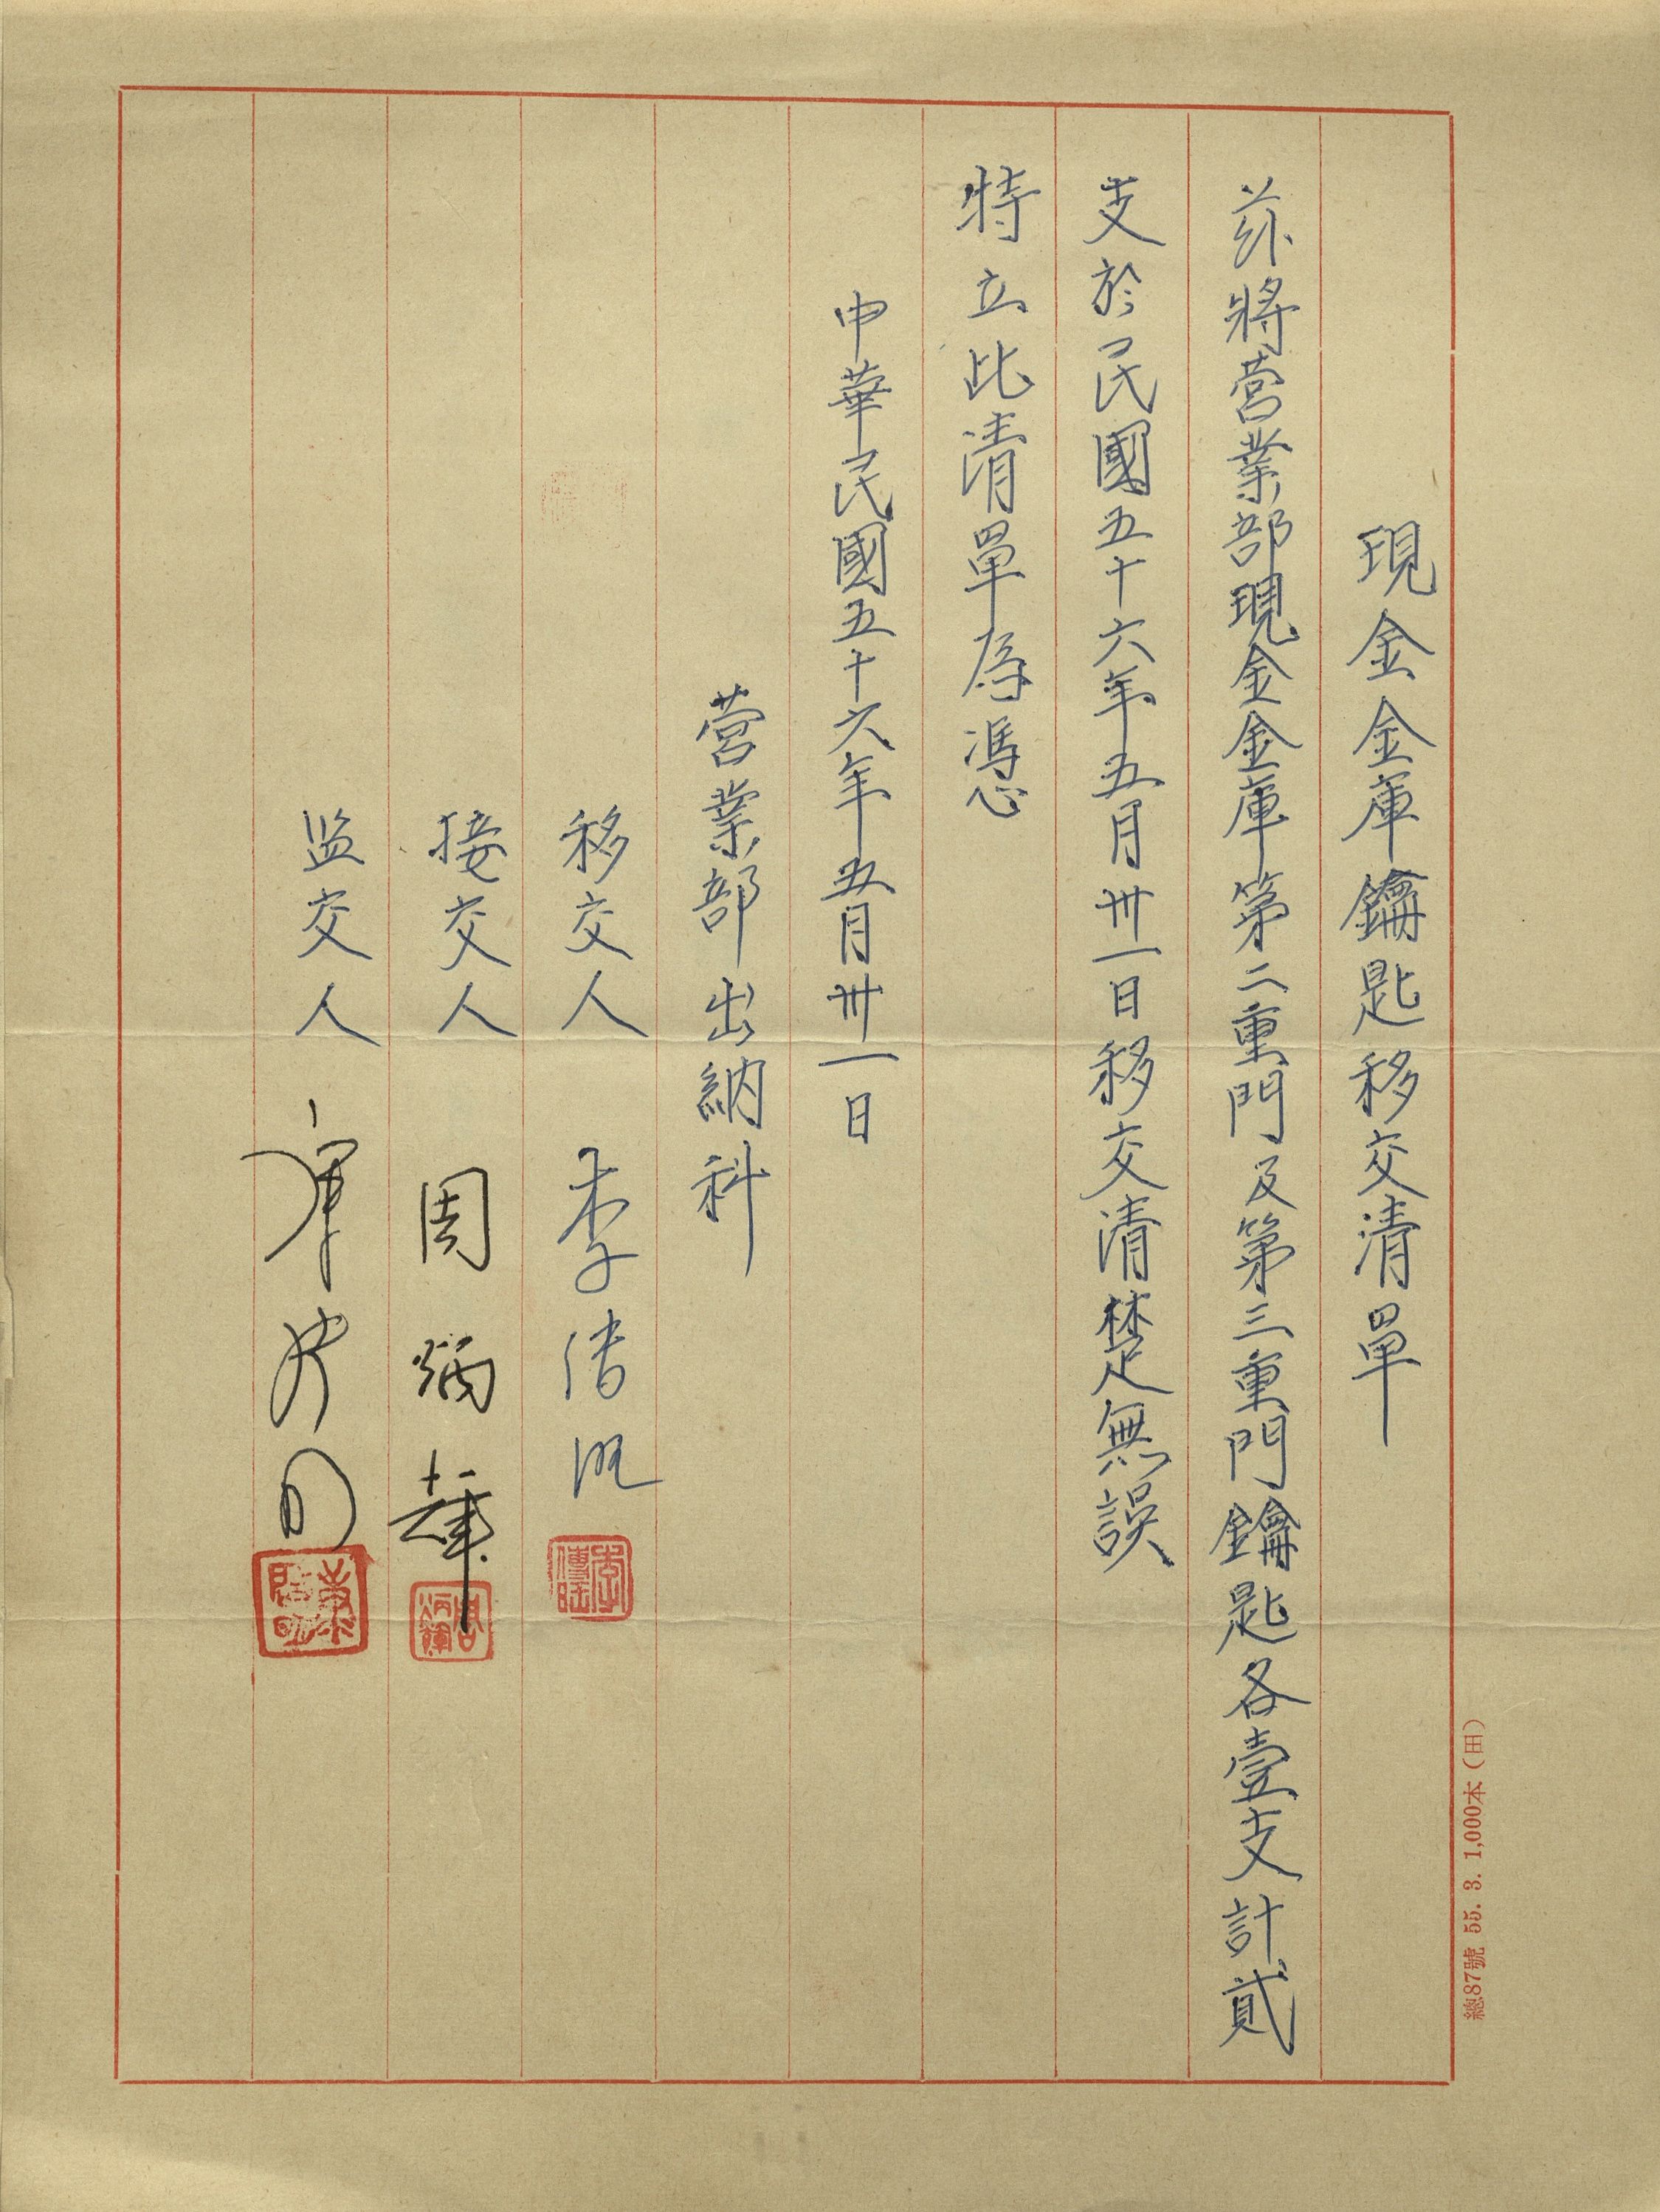 現金金庫鑰匙移交清單
茲將營業部現金金庫第二重門及第三重門鑰匙各壹支計貳
支於民國五十六年五月卅一日移交清楚無誤
特立此清單為憑
中華民國五十六年五月卅一日
營業部出納科
移交人 李傳旺
接交人 周炳輝
监交人
總87號 55. 3. 1,000本(田)